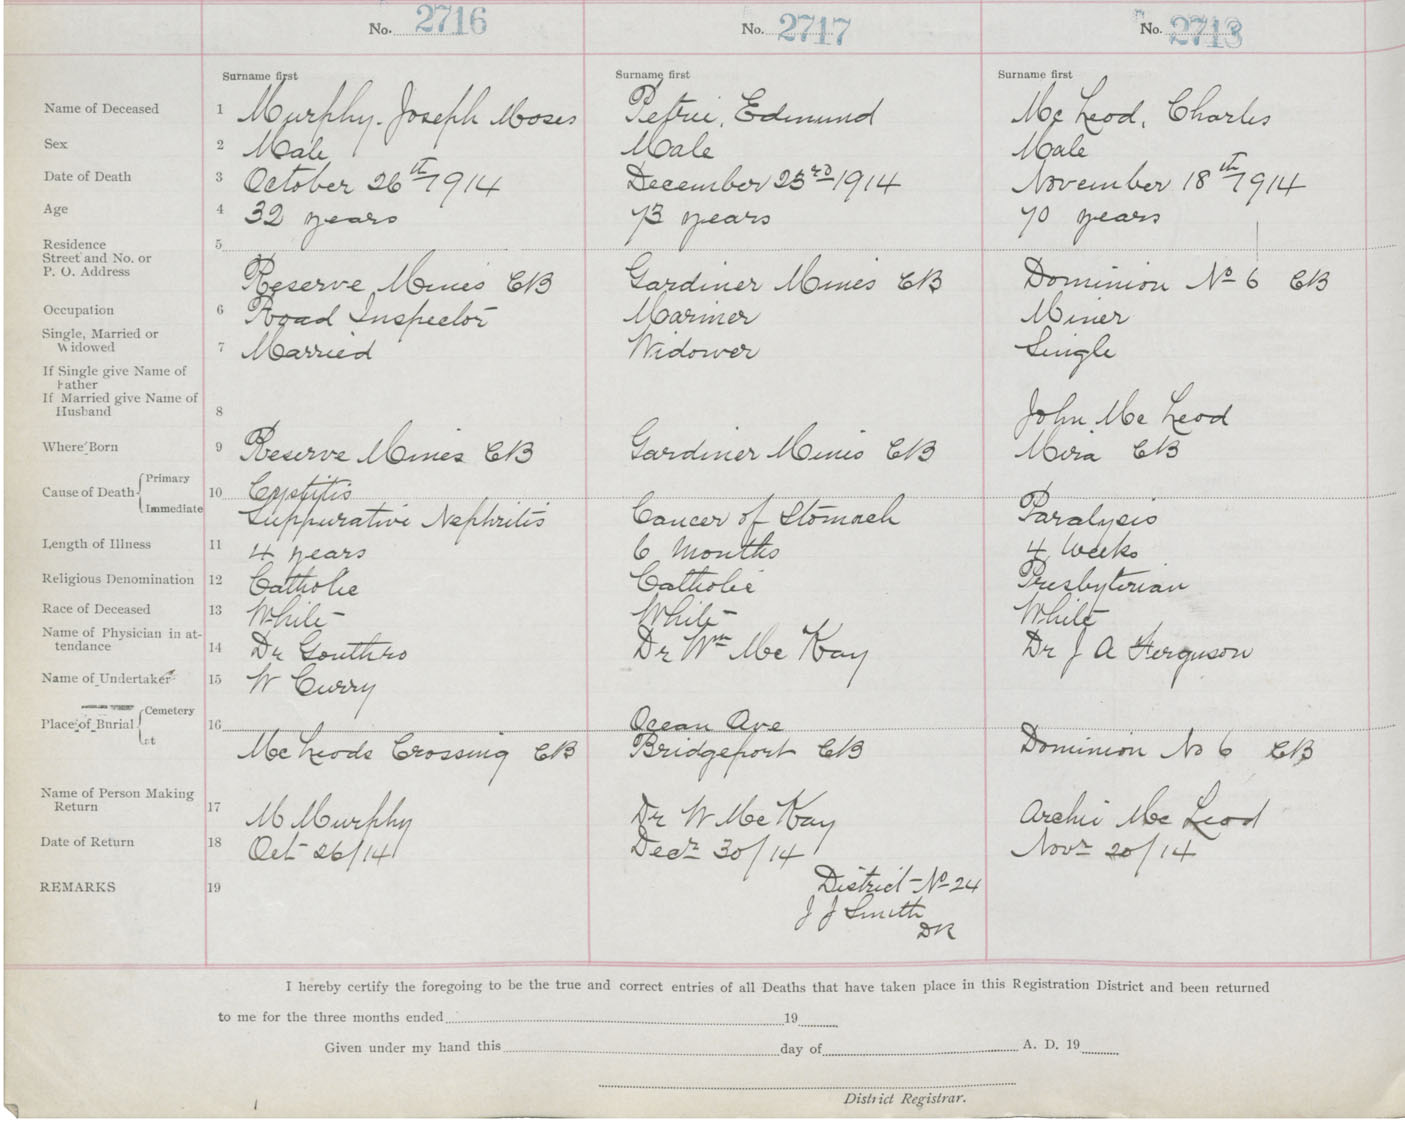 No. 2716 No. 2717 No. 2718
Surname first Surname first Surname first
Name of Deceased 1 Murphy. Joseph Moses Petrie, Edmund Mc Leod, Charles
Sex 2 Male Male Male
Date of Death 3 October 26th 1914 December 23rd 1914 November 18th 1914
Age 4 32 years 73 years 70 years
Residence 5
Street and No. or
P. O. Address Reserve Mines CB Gardiner Mines CB Dominion No 6 CB
Occupation 6 Road Inspector Mariner Miner
Single, Married or
Widowed 7 Married Widower Single
If Single give Name of
Father
If Married give Name of
Husband 8 John Mc Leod
Where Born 9 Reserve Mines CB Gardiner Mines CB Mira CB
Cause of Death Primary 10 Cystitis
Immediate Suppurative Nephritis Cancer of Stomach Paralysis
Length of Illness 11 4 years 6 months 4 weeks
Religious Denomination 12 Catholic Catholic Presbyterian
Race of Deceased 13 White White White
Name of Physician in at-
tendance 14 Dr Gouthro Dr Wm Mc Kay Dr J A Ferguson
Name of Undertaker 15 W Curry
Place of Burial Cemetery 16 Ocean Ave
at Mc Leods Crossing CB Bridgeport CB Dominion No 6 CB
Name of Person Making
Return 17 M Murphy Dr W Mc Kay Archie Mc Leod
Date of Return 18 Oct 26/14 Decr 30/14 Novr 20/14
REMARKS 19 District No 24
J J Smith
DR
I hereby certify the foregoing to be the true and correct entries of all Deaths that have taken place in this Registration District and been returned
to me for the three months ended 19
Given under my hand this day of A. D. 19
District Registrar.